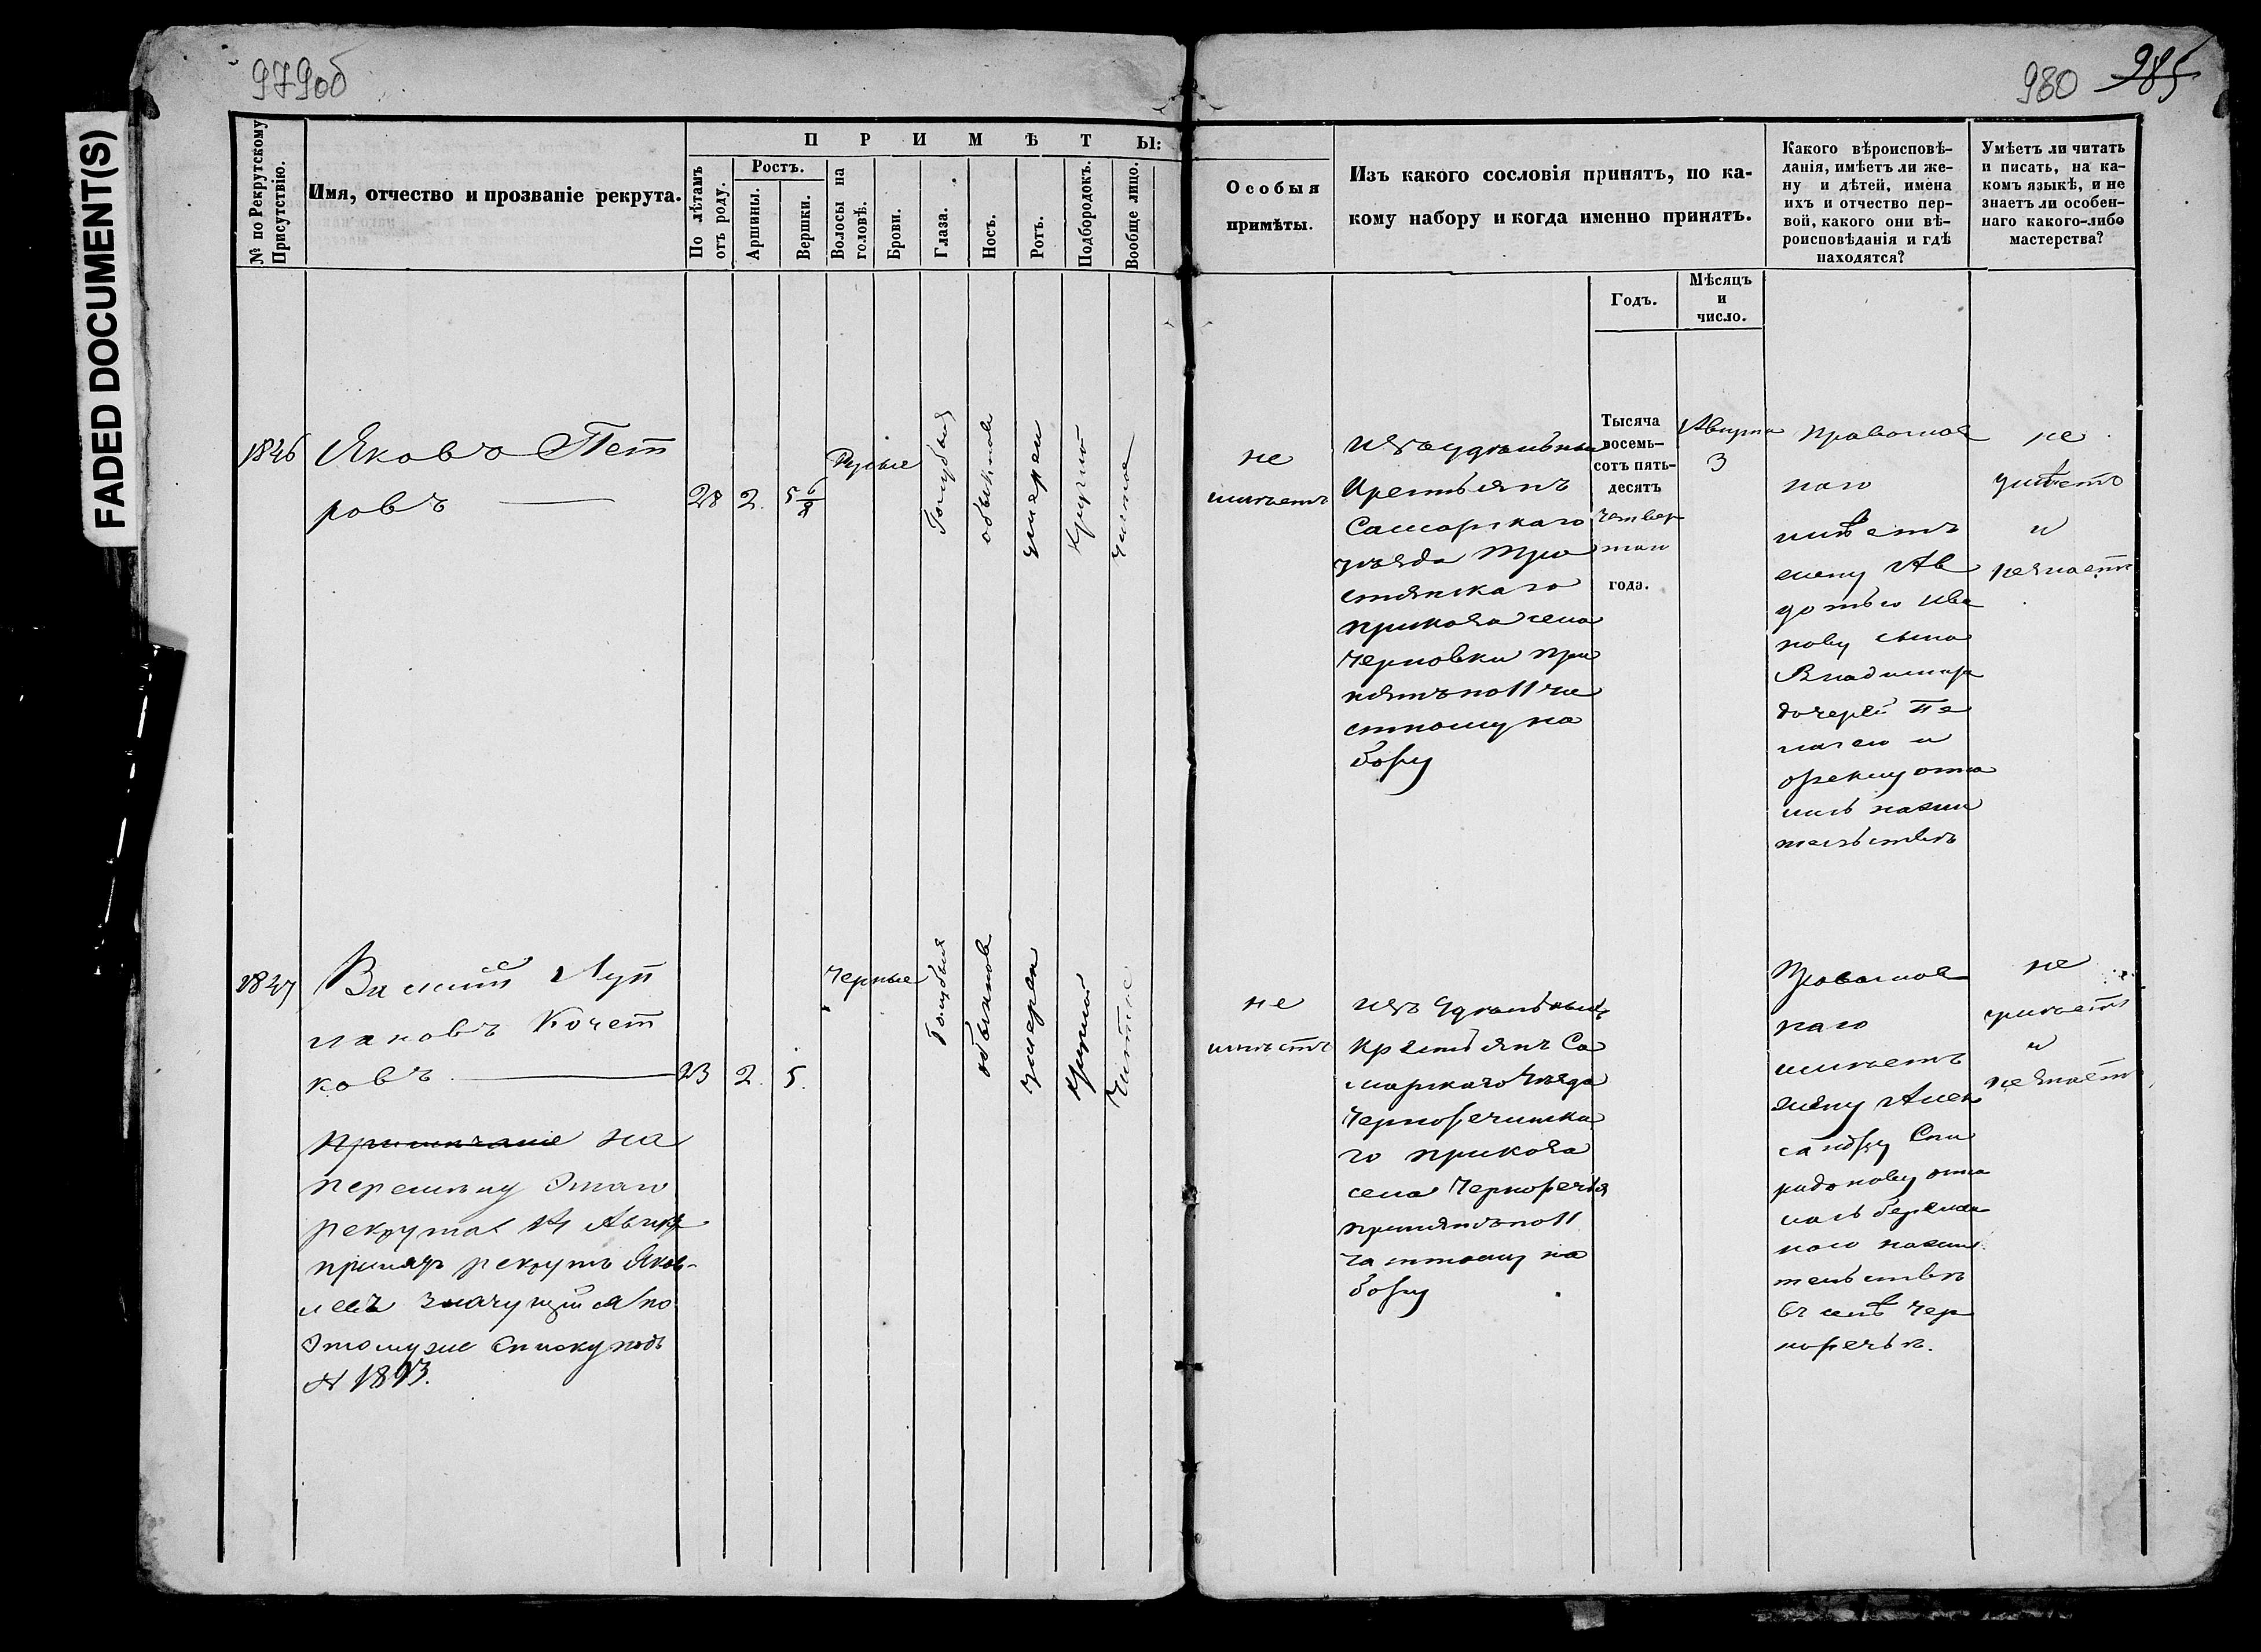 FADED DOCUMENT(S)
979об
980 985
№ по Рекрутскому
Присутствію.
Имя, отчество и прозваніе рекрута.
ПРИМѢТЫ:
По лѣтамъ
отъ роду.
Ростъ.
Аршины.
Вершки.
Волосы на
головѣ.
Брови.
Глаза.
Носъ.
Ротъ.
Подбородокъ.
Вообще лицо.
Особыя
примѣты.
Изъ какого сословія принятъ, по ка-
кому набору и когда именно принятъ.
Годъ.
Мѣсяцъ
и
число.
Какого вѣроисповѣ-
данія, имѣетъ ли же-
ну и дѣтей, имена
ихъ и отчество пер-
вой, какого они вѣ-
роисповѣданія и гдѣ
находятся?
Умѣетъ ли читать
и писать, на ка-
комъ языкѣ, и не
знаетъ ли особен-
наго какого-либо
мастерства?
1846
Яковъ Пет
ровъ
28
2.
5 6/8
Русые
Голубыя
обыкнов
умерен
Круглой
чистое
не
имѣетъ
Изъ удѣльных
Крестьянъ
Самарскаго
уѣзда Тро
стянскаго
приказа села
Черновки при
нятъ по 11 ча
стному на
бору
Тысяча
восемь-
сотъ пять-
десятъ
четвер
таго
года.
Августа
3
Православ
наго
имѣетъ
жену Ав
дотью Ива
нову сына
Владимира
дочерей Пе
лагею и
остались на жи
тельствѣ
не
умѣетъ
и
незнаетъ
1847
Василий Луп
пановъ Кочет
ковъ
23
2.
5.
Черные
Голубыя
обыкнов
умерен
Круглой
Чистое
Примѣчаніе на
перемѣну этаго
рекрута 14 Август
принятъ рекрутъ Яков-
левъ значущийся по
этому же списку подъ
№ 1893.
не
имѣетъ
изъ Удѣльныхъ
Крестьянъ Са
марскаго Уѣзда
Чернореченска
го приказа
села Черноречья
принятъ по 11
частному на
бору
Православ
наго
имѣетъ
жену Алек
сандру Спи
ридонову оста
лась беремен
ною на жи
тельствѣ
въ селѣ Чер
норечьѣ.
не
умѣетъ
и
незнаетъ